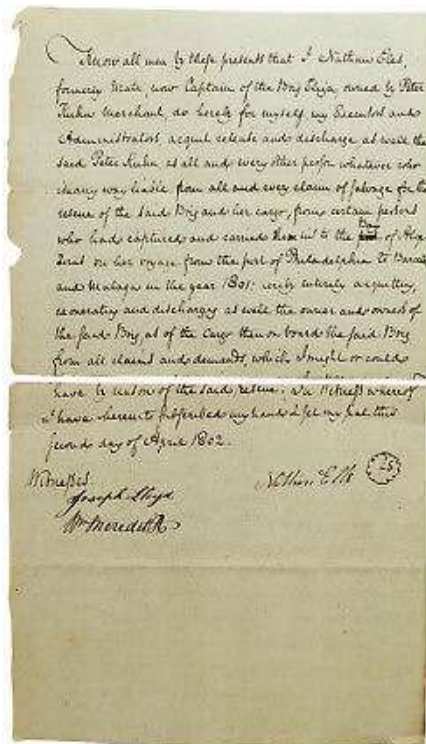 Know all men by these presents that I Nathan Eles,
formerly Mate now Captain of the Brig Eliza, owned by Peter
Kuhn Merchant, do hereby for myself my Executors and
Administrators acquit release and discharge as well the
said Peter Kuhn as all and every other person whatever who
may way liable from all and every claim of salvage for the
rescue of the said Brig and her cargo, from certain persons
who had captured and carried them into the Bay of
on her voyage from the port of Philadelphia to
and Malaga in the year 1801: hereby entirely acquitting,
exonerating and discharging as well the owner and owners of
the said Brig, as of the Cargo then on board the said Brig
from all claims and demands, which I might or could
have by reason of the said rescue. In Witness whereof
I have hereunto subscribed my hand & set my seal this
second day of April 1802.
Witnesses
Joseph Lloyd
Wm Meredith
Nathan LS